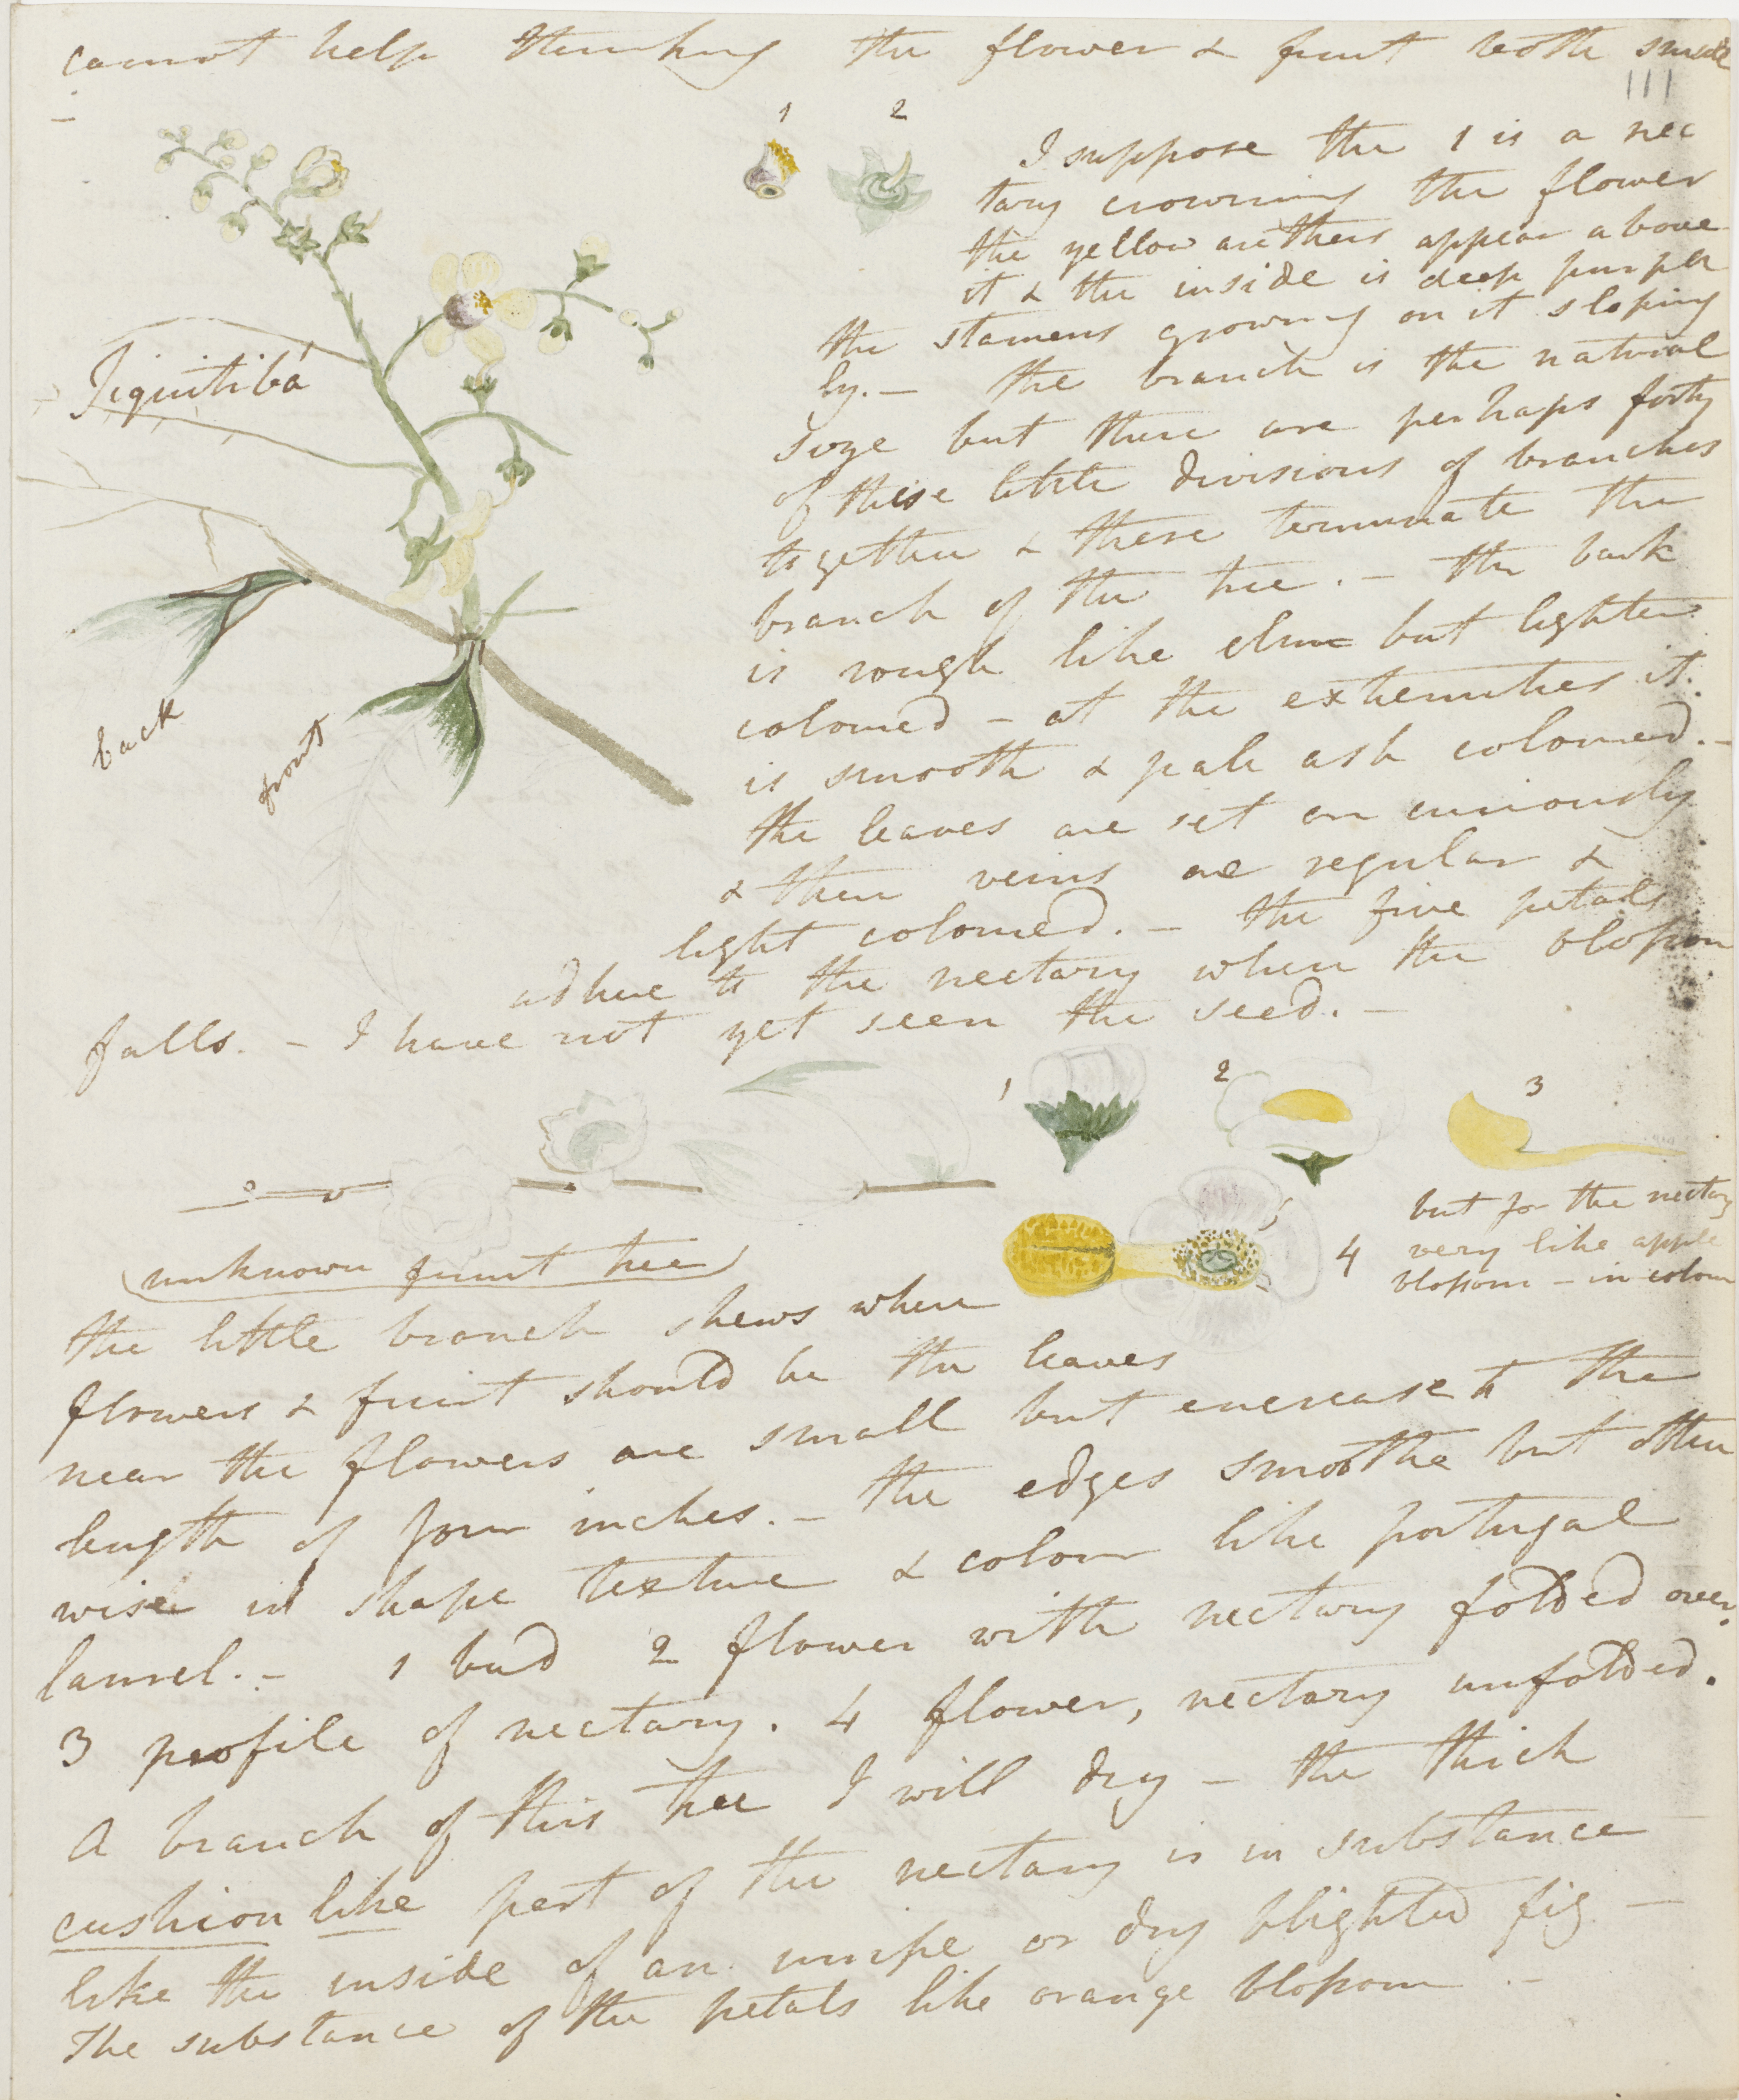 cannot help thinking the flower & fruit both smell
111
1 2
I suppose the 1 is a nec
tary crowning the flower
the yellow anthers appear above
it & the inside is deep purple
the stamens growing on it sloping
ly. – the branch is the natural
size but there are perhaps forty
of these little divisions of branches
together & these terminate the
branch of the tree. – the bark
is rough like elm but lighter
coloured – at the extremities it
is smooth & pale ash coloured. –
the leaves are set on curiously
& their veins are regular &
light coloured. – the five petals
adhere to the nectary when the blossom
falls. – I have not yet seen the seed. –
Jiquitibá
back
front
1 2 3
4
but for the nectary
very like apple
blossom – in colour
unknown fruit tree
the little branch shews where
flowers & fruit should be the leaves
near the flowers are small but encrease to the
length of four inches. – the edges smoothe but other
wise in shape texture & colour like portugal
laurel. – 1 bud 2 flower with nectary folded over.
3 profile of nectary. 4 flower, nectary unfolded.
A branch of this tree I will dry – the thick
cushion like part of the nectary is in substance
like the inside of an unripe or dry blighted fig –
The substance of the petals like orange blossom –